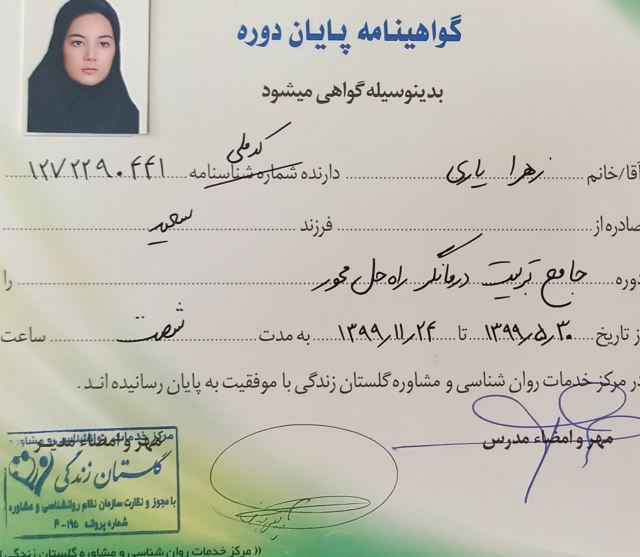 گواهینامه پایان دوره
بدینوسیله گواهی میشود
کد ملی
آقا/خانم زهرا یاری دارنده شماره شناسنامه ۱۲۷۲۲۹۰۴۴۱
صادره از فرزند سعید
دوره جامع تربیت درمانگر راه حل محور را
از تاریخ ۱۳۹۹٫۵٫۳۰ تا ۱۳۹۹٫۱۱٫۲۴ به مدت شصت ساعت
در مرکز خدمات روان شناسی و مشاوره گلستان زندگی با موفقیت به پایان رسانیده اند.
مهر و امضاء مدرس
مهر و امضاء مدیر
مرکز خدمات روانشناسی و مشاوره
گلستان زندگی
با مجوز و نظارت سازمان نظام روانشناسی و مشاوره
شماره پروانه ۱۹۵-۴
(( مرکز خدمات روان شناسی و مشاوره گلستان زندگی ))